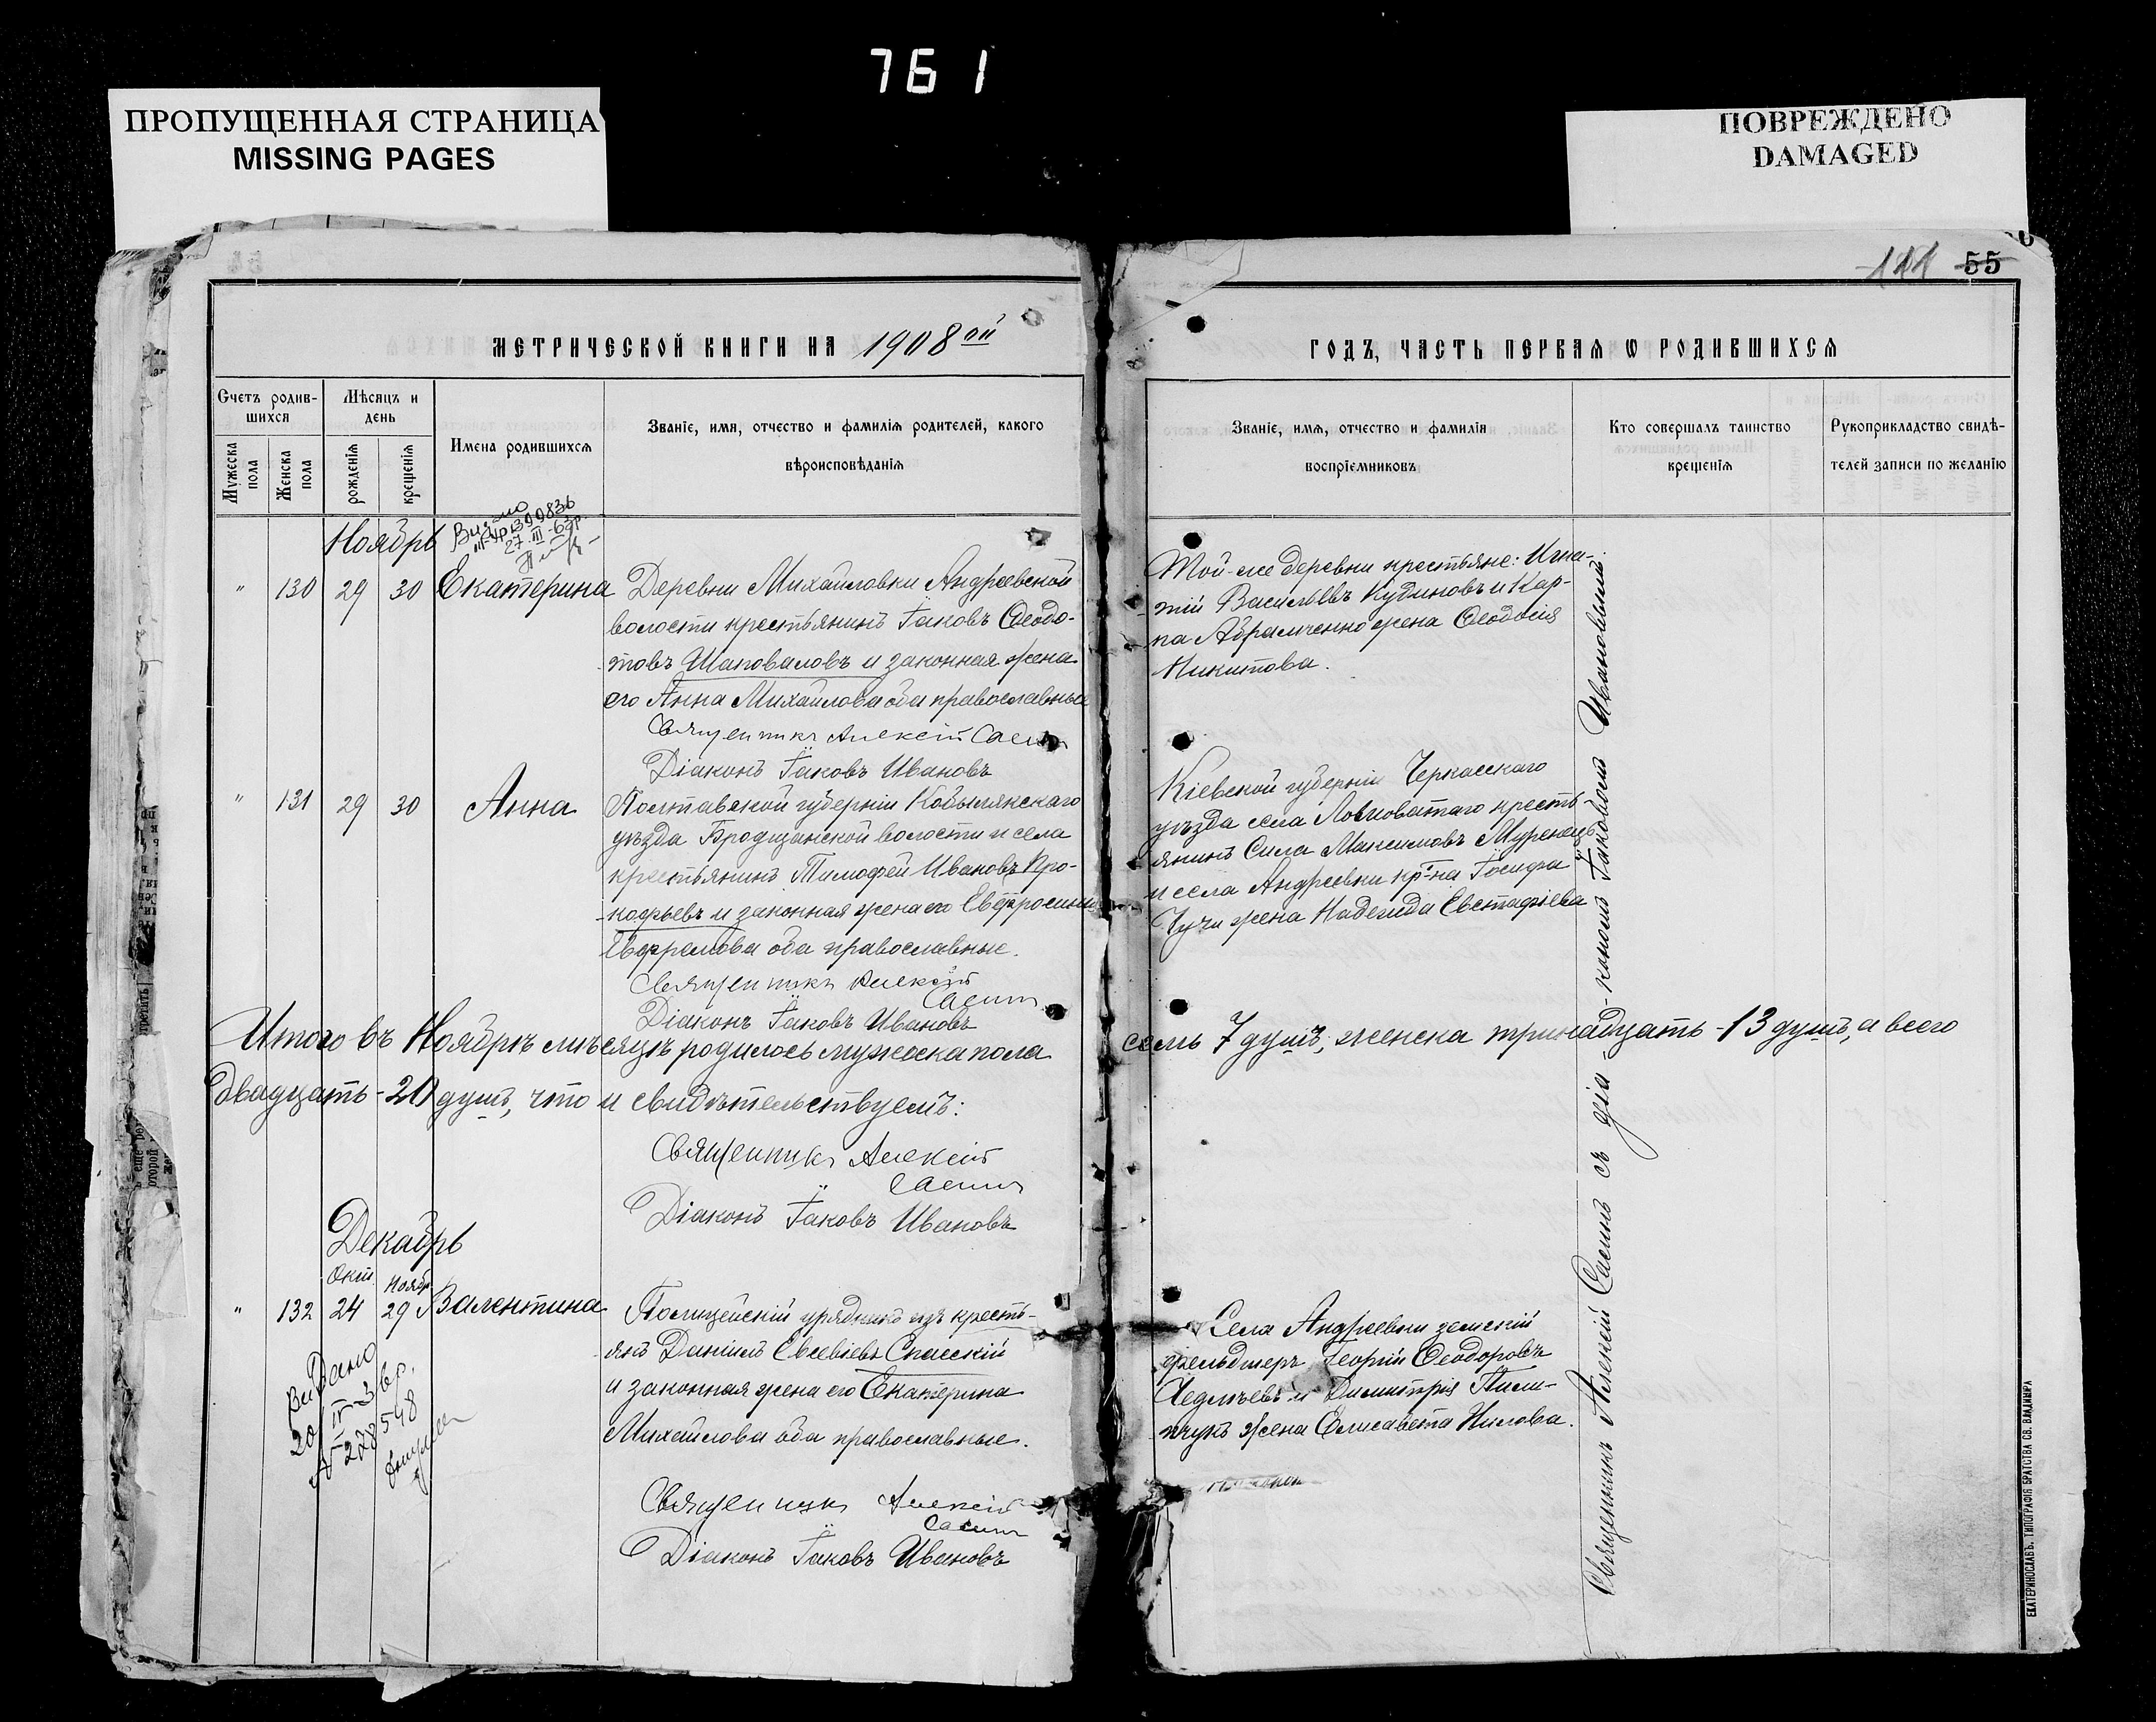 761
ПРОПУЩЕННАЯ СТРАНИЦА
MISSING PAGES
ПОВРЕЖДЕНО
DAMAGED
111 55
МЕТРИЧЕСКОЙ КНИГИ НА 1908ой
Счетъ родив-
шихся
Мѣсяцъ и
день
Имена родившихся
Званіе, имя, отчество и фамилія родителей, какого
вѣроисповѣданія
Мужеска
пола
Женска
пола
рожденія
крещенія
Ноябрь
27-III-63р.
" 130 29 30 Екатерина
Деревни Михайловки Андреевской
волости крестьянинъ Іаковъ Ѳеодо-
товъ Шаповаловъ и законная жена
его Анна Михайлова оба православные
Священникъ Алексій Саенъ
Діаконъ Іаковъ Ивановъ
" 131 29 30 Анна
Полтавской губерніи Кобылякскаго
уѣзда Бродщанской волости и села
крестьянинъ Тимофей Ивановъ Про-
кофьевъ и законная жена его Евфросинія
Евфремова оба православные.
Священникъ Алексій
Саенъ
Діаконъ Іаковъ Ивановъ
Итого въ Ноябрѣ мѣсяцѣ родилось мужеска пола
двадцать - 20 душъ, что и свидѣтельствуемъ:
Священникъ Алексій
Саенъ
Діаконъ Іаковъ Ивановъ
Декабрь
Окт. Ноябр.
" 132 24 29 Валентина
Полицейскій урядникъ изъ кресть-
янъ Даніилъ Евсевіевъ Спасскій
и законная жена его Екатерина
Михайлова оба православные.
Видано
20/IV-
№ 278548
Священникъ Алексій
Саенъ
Діаконъ Іаковъ Ивановъ
ГОДЪ, ЧАСТЬ ПЕРВАЯ Ѡ РОДИВШИХСЯ
Званіе, имя, отчество и фамилія
воспріемниковъ
Кто совершалъ таинство
крещенія
Рукоприкладство свидѣ-
телей записи по желанію
Той-же деревни крестьяне: Игна-
тій Васильевъ Кудиновъ и Кар-
па Абрамченко жена Ѳеодосія
Никитова.
Кіевской губерніи Черкасскаго
уѣзда села Ловковатаго кресть-
янинъ Сила Максимовъ Муренецъ
и села Андреевки кр-на Іосифа
Чучи жена Надежда Евстафіева
семь 7 душъ, женска тринадцать - 13 душъ, а всего
Села Андреевки земскій
фельдшеръ Георгій Ѳеодоровъ
и Димитрія Пили-
пчукъ жена Елисавета Нилова.
Священникъ Алексій Саенъ съ діа-кономъ Іаковомъ Ивановымъ.
ЕКАТЕРИНОСЛАВЪ. ТИПОГРАФІЯ БРАТСТВА СВ. ВЛАДИМІРА